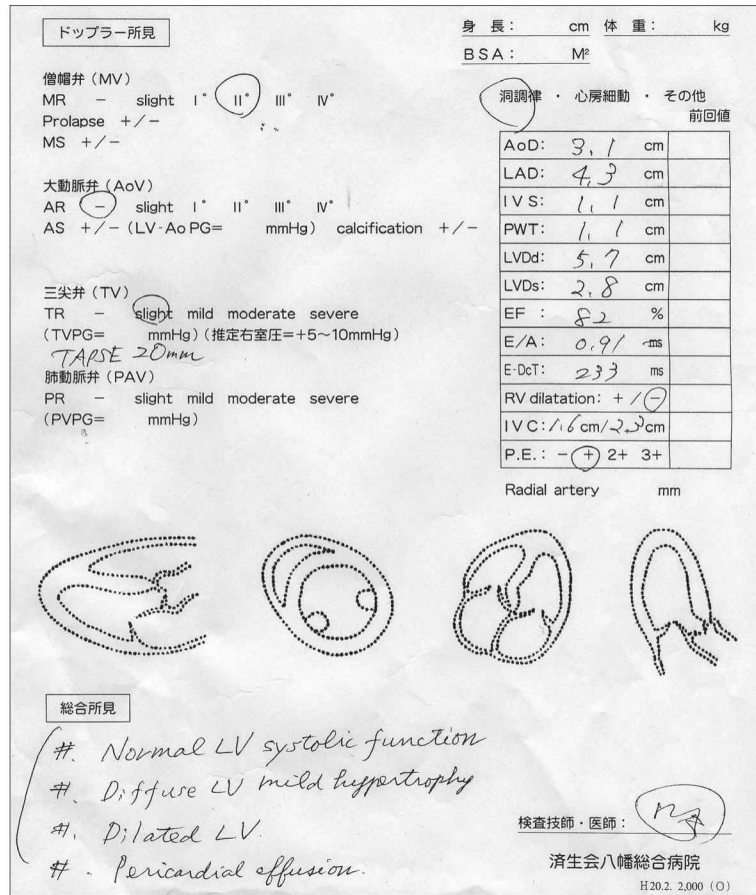 ドップラー所見
身 長： cm 体 重： kg
BSA： M²
僧帽弁（MV）
MR － slight Ⅰ° Ⅱ° Ⅲ° Ⅳ°
Prolapse ＋/－
MS ＋/－
洞調律 ・ 心房細動 ・ その他
前回値
大動脈弁（AoV）
AR － slight Ⅰ° Ⅱ° Ⅲ° Ⅳ°
AS ＋/－（LV-Ao PG= mmHg） calcification ＋/－
三尖弁（TV）
TR － slight mild moderate severe
（TVPG= mmHg）（推定右室圧=+5～10mmHg）
TAPSE 20mm
肺動脈弁（PAV）
PR － slight mild moderate severe
（PVPG= mmHg）
AoD: 3.1 cm
LAD: 4.3 cm
IVS: 1.1 cm
PWT: 1.1 cm
LVDd: 5.7 cm
LVDs: 2.8 cm
EF : 82 %
E/A: 0.91 ms
E-DcT: 233 ms
RV dilatation: + / －
IVC: 1.6 cm/2.3 cm
P.E.: － + 2+ 3+
Radial artery mm
総合所見
#. Normal LV systolic function
#. Diffuse LV mild hypertrophy
#. Dilated LV.
#. Pericardial effusion.
検査技師・医師：
済生会八幡総合病院
H20.2. 2,000（O）